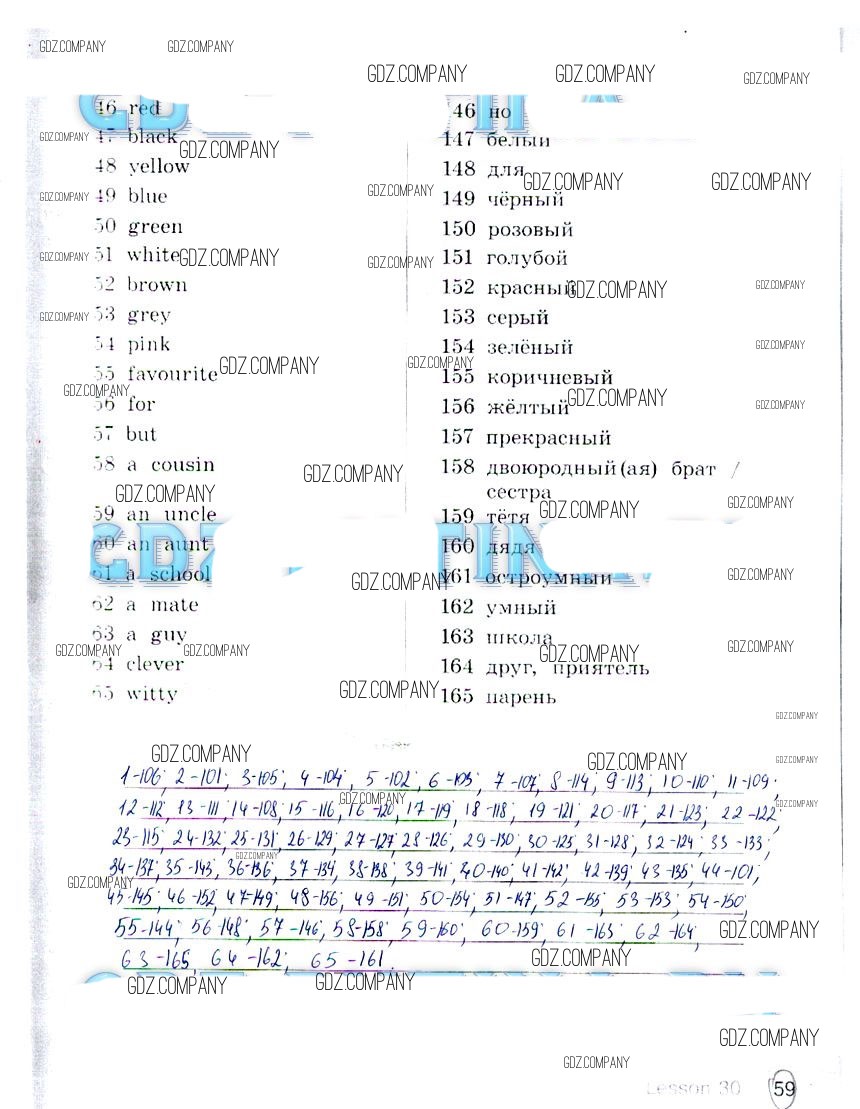 GDZ.COMPANY GDZ.COMPANY
GDZ.COMPANY GDZ.COMPANY GDZ.COMPANY
46 red
47 black
48 yellow
49 blue
50 green
51 white
52 brown
53 grey
54 pink
55 favourite
56 for
57 but
58 a cousin
59 an uncle
60 an aunt
61 a school
62 a mate
63 a guy
64 clever
65 witty
46 но
147 белый
148 для
149 чёрный
150 розовый
151 голубой
152 красный
153 серый
154 зелёный
155 коричневый
156 жёлтый
157 прекрасный
158 двоюродный(ая) брат /
сестра
159 тётя
160 дядя
161 остроумный
162 умный
163 школа
164 друг, приятель
165 парень
1-106; 2-101; 3-105; 4-104; 5-102; 6-103; 7-107; 8-114; 9-113; 10-110; 11-109;
12-112; 13-111; 14-108; 15-116; 16-120; 17-119; 18-118; 19-121; 20-117; 21-123; 22-122;
23-115; 24-132; 25-131; 26-129; 27-127; 28-126; 29-130; 30-125; 31-128; 32-124; 33-133;
34-137; 35-143; 36-136; 37-134; 38-138; 39-141; 40-140; 41-142; 42-139; 43-135; 44-101;
45-145; 46-152; 47-149; 48-156; 49-151; 50-154; 51-147; 52-155; 53-153; 54-150;
55-144; 56-148; 57-146; 58-158; 59-160; 60-159; 61-163; 62-164;
63-165; 64-162; 65-161.
GDZ.COMPANY GDZ.COMPANY GDZ.COMPANY
GDZ.COMPANY
GDZ.COMPANY
Lesson 30 59